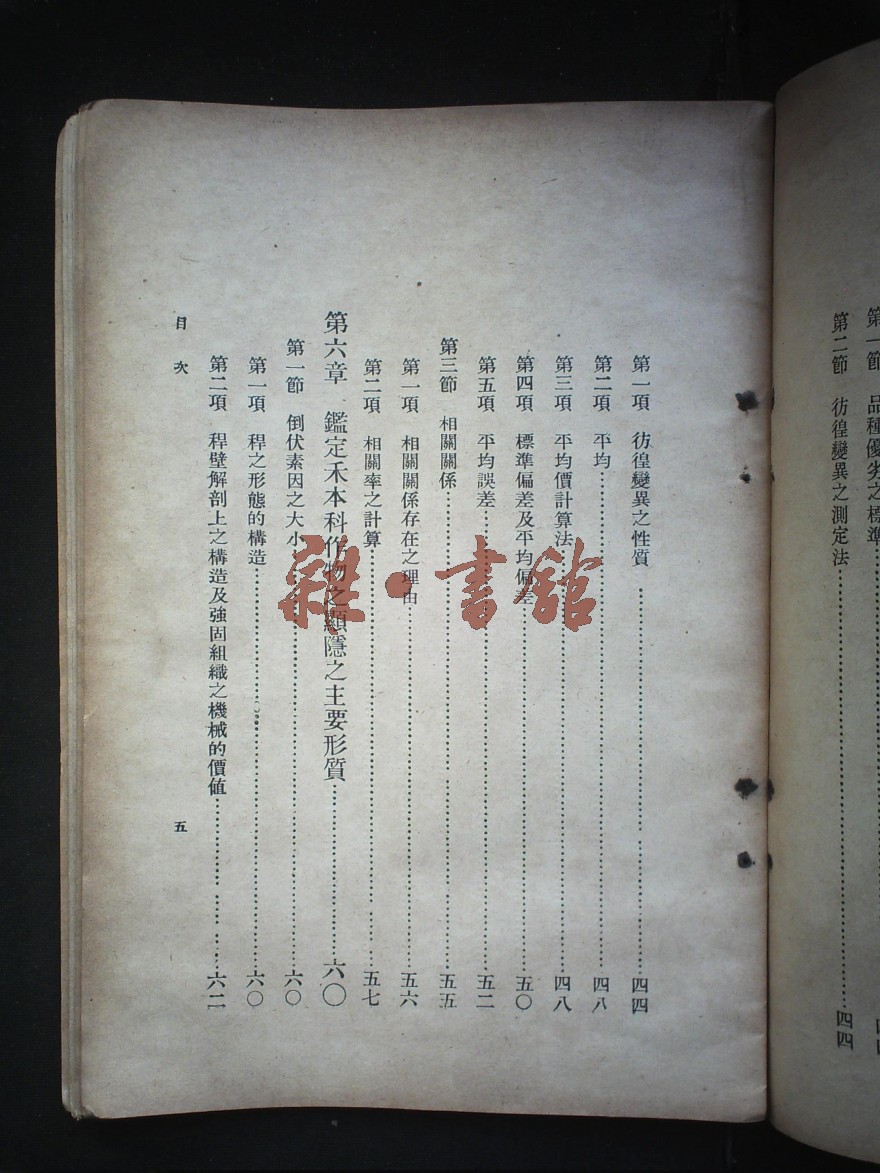 第一節 品種優劣之標準
第二節 彷徨變異之測定法……四四
第一項 彷徨變異之性質……四四
第二項 平均……四八
第三項 平均價計算法……四八
第四項 標準偏差及平均偏差……五〇
第五項 平均誤差……五二
第三節 相關關係……五五
第一項 相關關係存在之理由……五六
第二項 相關率之計算……五七
第六章 鑑定禾本科作物之顯隱之主要形質……六〇
第一節 倒伏素因之大小……六〇
第一項 稈之形態的構造……六〇
第二項 稈壁解剖上之構造及強固組織之機械的價值……六二
目次 五
雜·書館